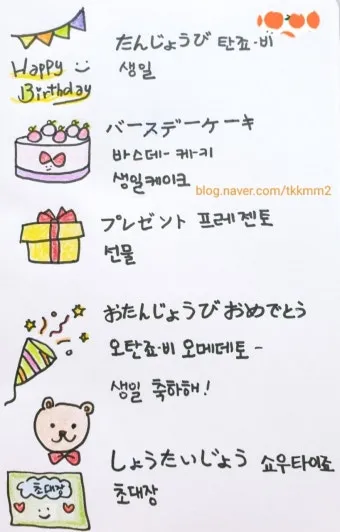 たんじょうび 탄죠-비
생일
Happy
Birthday
バースデーケーキ
바스데-케-키
생일케이크
blog.naver.com/tkkmm2
プレゼント 프레젠토
선물
おたんじょうび おめでとう
오탄죠-비 오메데토-
생일 축하해!
しょうたいじょう 쇼우타이죠
초대장
초대장